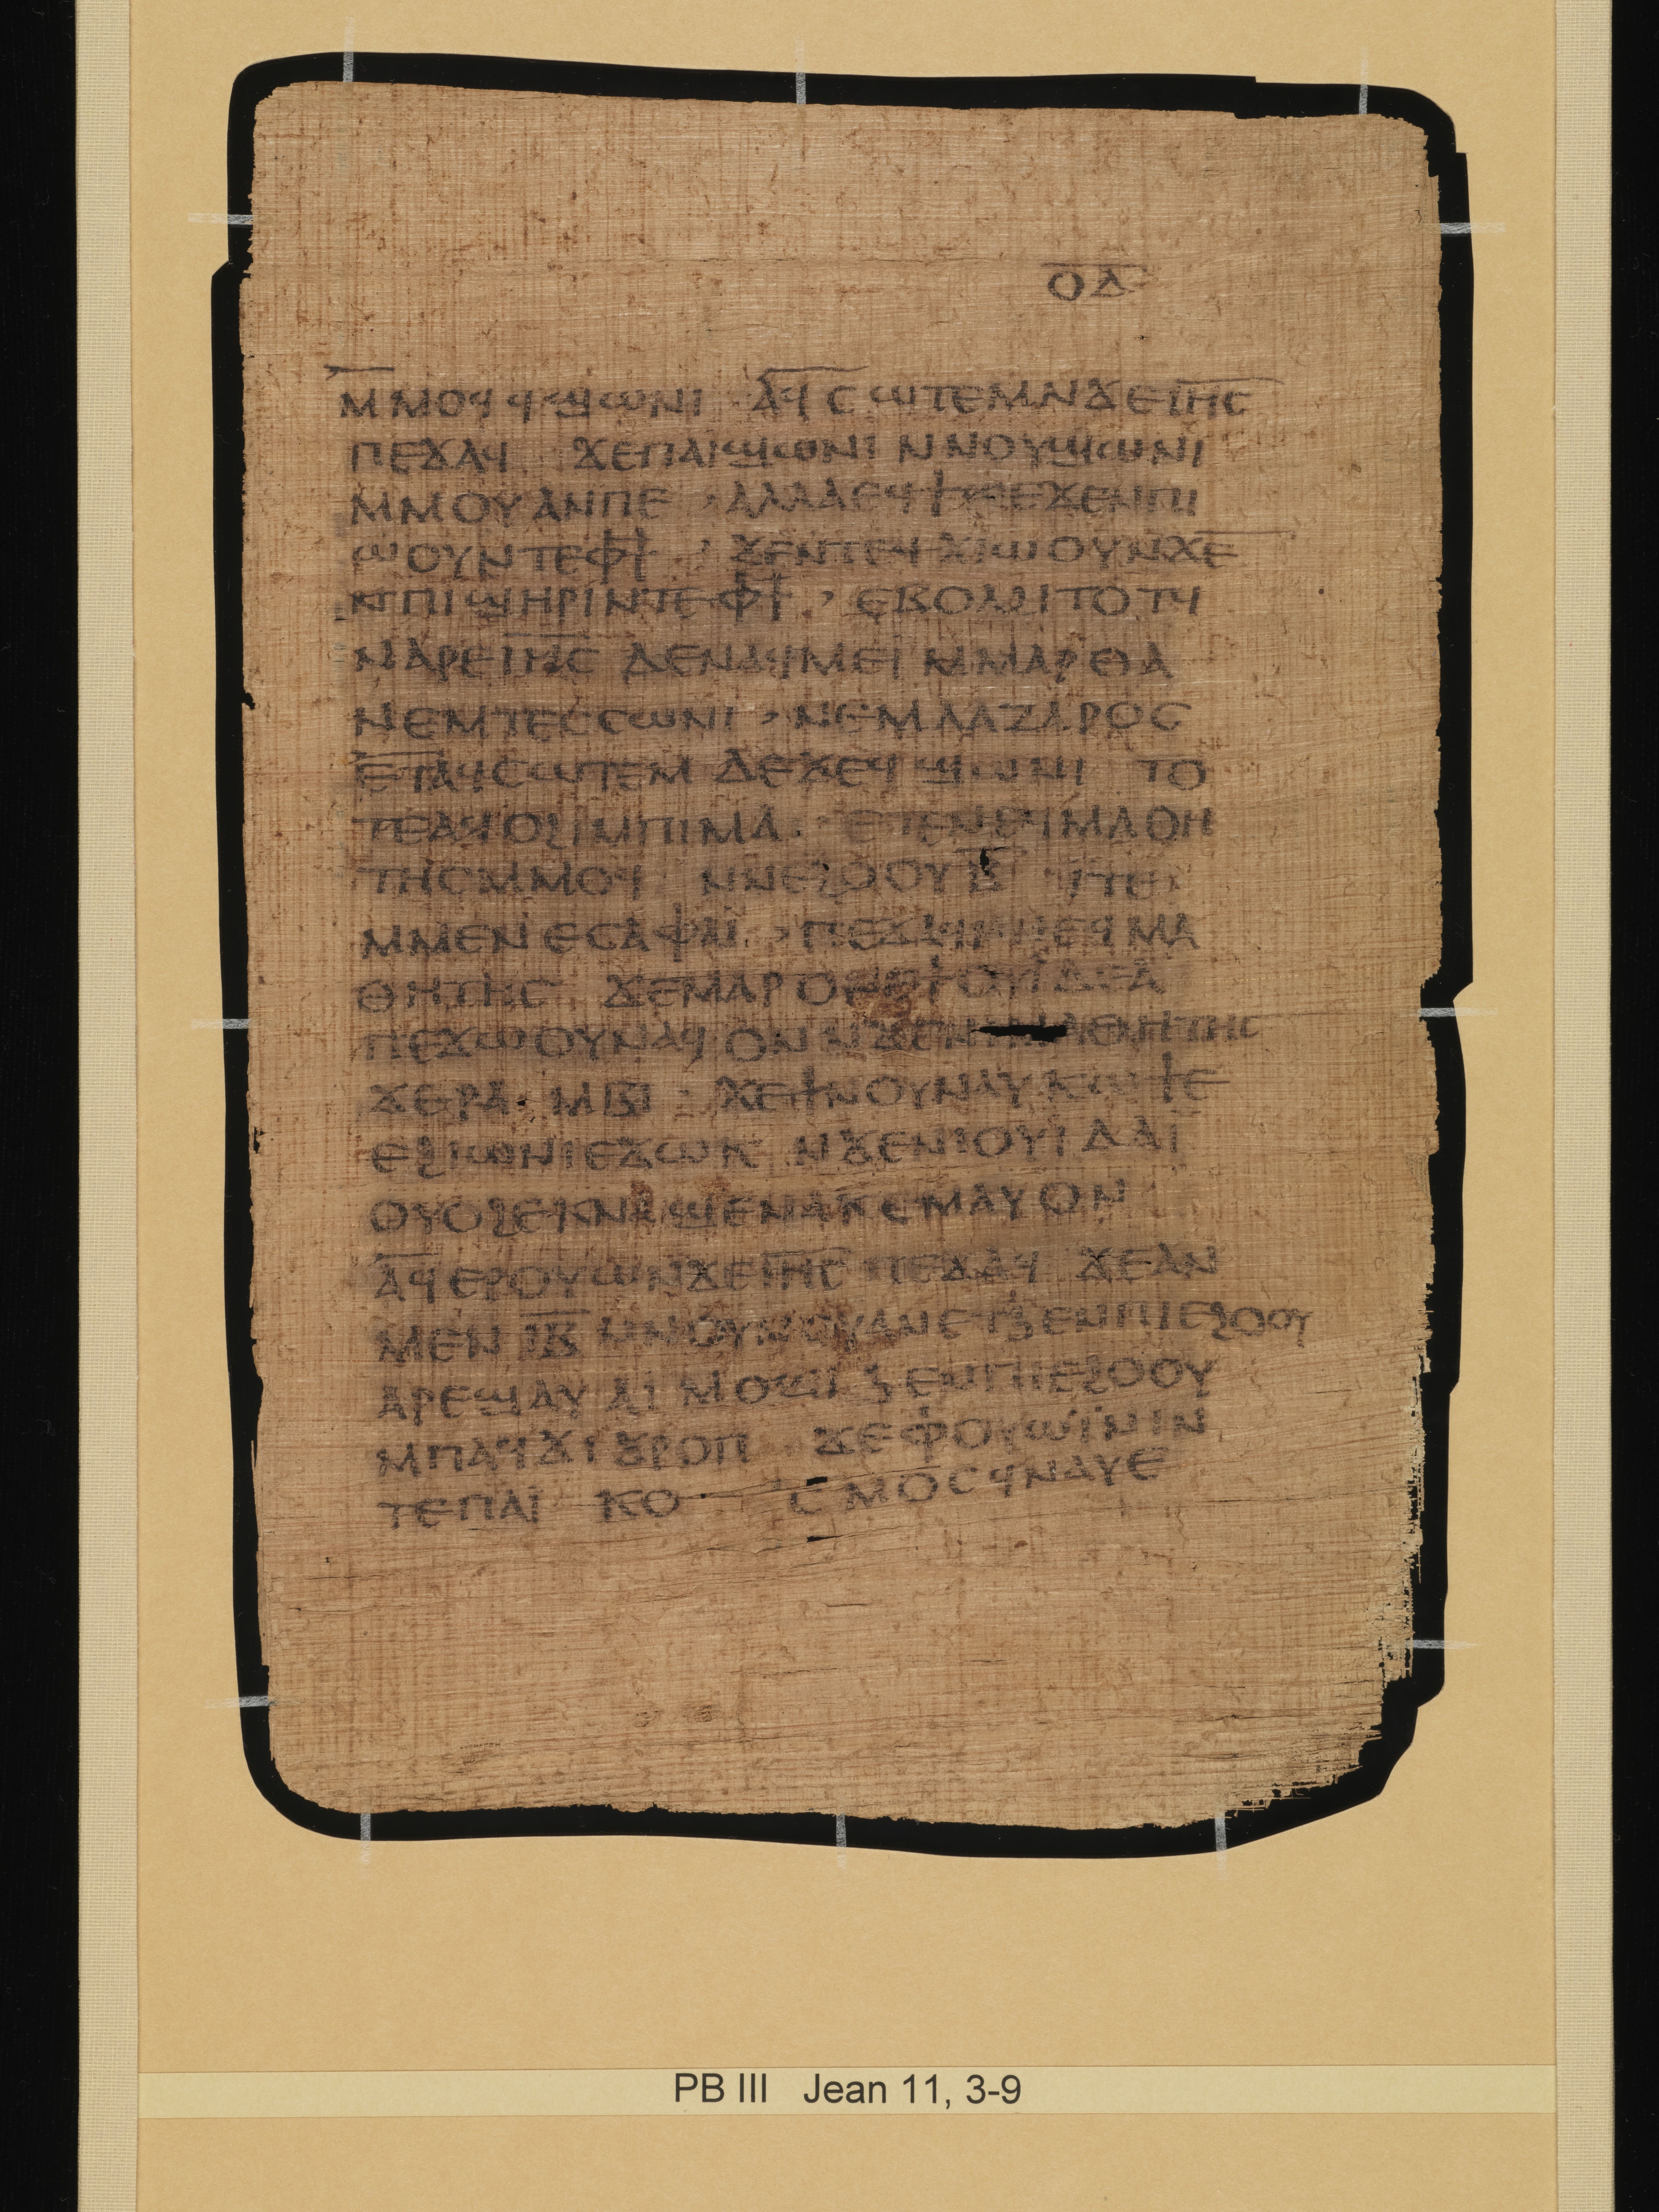 ⲟ̅ⲇ̅
ⲙⲙⲟϥϥϣⲱⲛⲓ ⲁϥⲥⲱⲧⲉⲙⲛϫⲉⲓ̅ⲏ̅ⲥ̅
ⲡⲉϫⲁϥ ϫⲉⲡⲁⲓϣⲱⲛⲓ ⲛⲛⲟⲩϣⲱⲛⲓ
ⲙⲙⲟⲩⲁⲛⲡⲉ ⲁⲗⲗⲁ ⲉϫⲉⲛⲡⲓ
ⲱⲟⲩⲛⲧⲉⲫϯ ϫⲉⲛⲧⲉϥϫⲓⲱⲟⲩⲛϫⲉ
ⲡⲓϣⲏⲣⲓⲛⲧⲉⲫϯ ⲉⲃⲟⲗϩⲓⲧⲟⲧϥ
ⲛⲁⲣⲉⲓ̅ⲏ̅ⲥ̅ ⲇⲉⲛⲁϥⲙⲉⲓ ⲙⲙⲁⲣⲑⲁ
ⲛⲉⲙⲧⲉⲥⲥⲱⲛⲓ ⲛⲉⲙⲗⲁⲍⲁⲣⲟⲥ
ⲉⲧⲁϥⲥⲱⲧⲉⲙ ⲇⲉϫⲉϥϣⲱⲛⲓ ⲧⲟ
ⲧⲉⲁϥⲟϩⲓⲙⲡⲓⲙⲁ ⲙⲁⲑⲏ
ⲧⲏⲥⲙⲙⲟϥ ⲛⲛⲉϩⲟⲟⲩⲃ̅ ⲓⲧⲉ
ⲙⲙⲉⲛⲉⲥⲁⲫⲁⲓ ⲡⲉϫⲁϥⲛⲛⲉϥⲙⲁ
ⲑⲏⲧⲏⲥ ϫⲉⲙⲁⲣⲟⲛ ϯⲟⲩⲇⲉⲁ
ⲡⲉϫⲱⲟⲩⲛⲁϥ ⲟⲛⲛϫⲉⲛⲓⲙⲁⲑⲏⲧⲏⲥ
ϫⲉⲣⲁⲃⲃⲓ ϫⲉϯⲛⲟⲩⲛⲁⲩⲕⲱϯⲉ
ⲉϩⲓⲱⲛⲓⲉϫⲱⲕ ⲛϫⲉⲛⲓⲟⲩⲓⲇⲁⲓ
ⲟⲩⲟϩⲉⲕⲛⲁϣⲉⲛⲁⲕⲉⲙⲁⲩⲟⲛ
ⲁϥⲉⲣⲟⲩⲱⲛϫⲉⲓ̅ⲏ̅ⲥ̅ ⲡⲉϫⲁϥ ϫⲉⲁⲛ
ⲙⲉⲛ ⲓ̅ⲃ̅ ⲛⲛⲟⲩⲛⲟⲩⲁⲛⲉⲧϧⲉⲛⲡⲓⲉϩⲟⲟⲩ
ⲁⲣⲉϣⲁⲩⲁⲓ ⲙⲟϣⲓ ϧⲉⲛⲡⲓⲉϩⲟⲟⲩ
ⲙⲡⲁϥϫⲓϭⲣⲟⲡ ϫⲉⲫⲟⲩⲱⲓⲛⲓⲛ
ⲧⲉⲡⲁⲓ ⲕⲟ ⲥⲙⲟⲥϥⲛⲁⲩⲉ
PB III Jean 11, 3-9